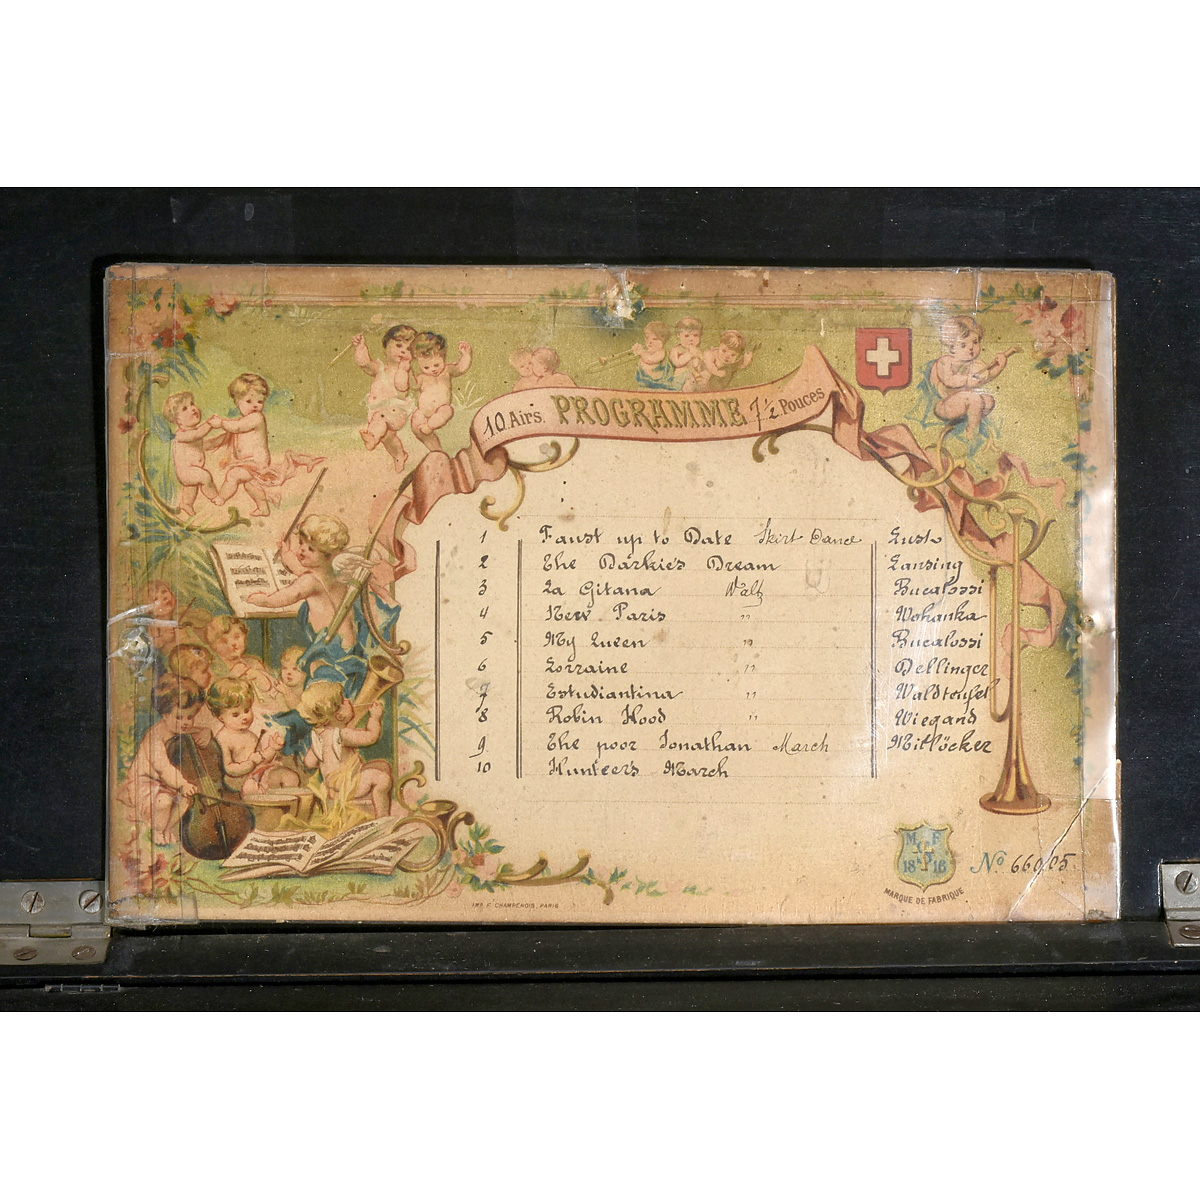 10 Airs. PROGRAMME 7½ Pouces
1 Faust up to Date Skirt Dance Lusto
2 The Darkie's Dream Lansing
3 La Gitana Waltz Bucalossi
4 New Paris " Wohanka
5 My Queen " Bucalossi
6 Lorraine " Dellinger
7 Estudiantina " Waldteufel
8 Robin Hood " Wiegand
9 The poor Jonathan March Mitlöcker
10 Hunteer's March
M F
18 16
MARQUE DE FABRIQUE
No 66005
IMP. F. CHAMPENOIS, PARIS